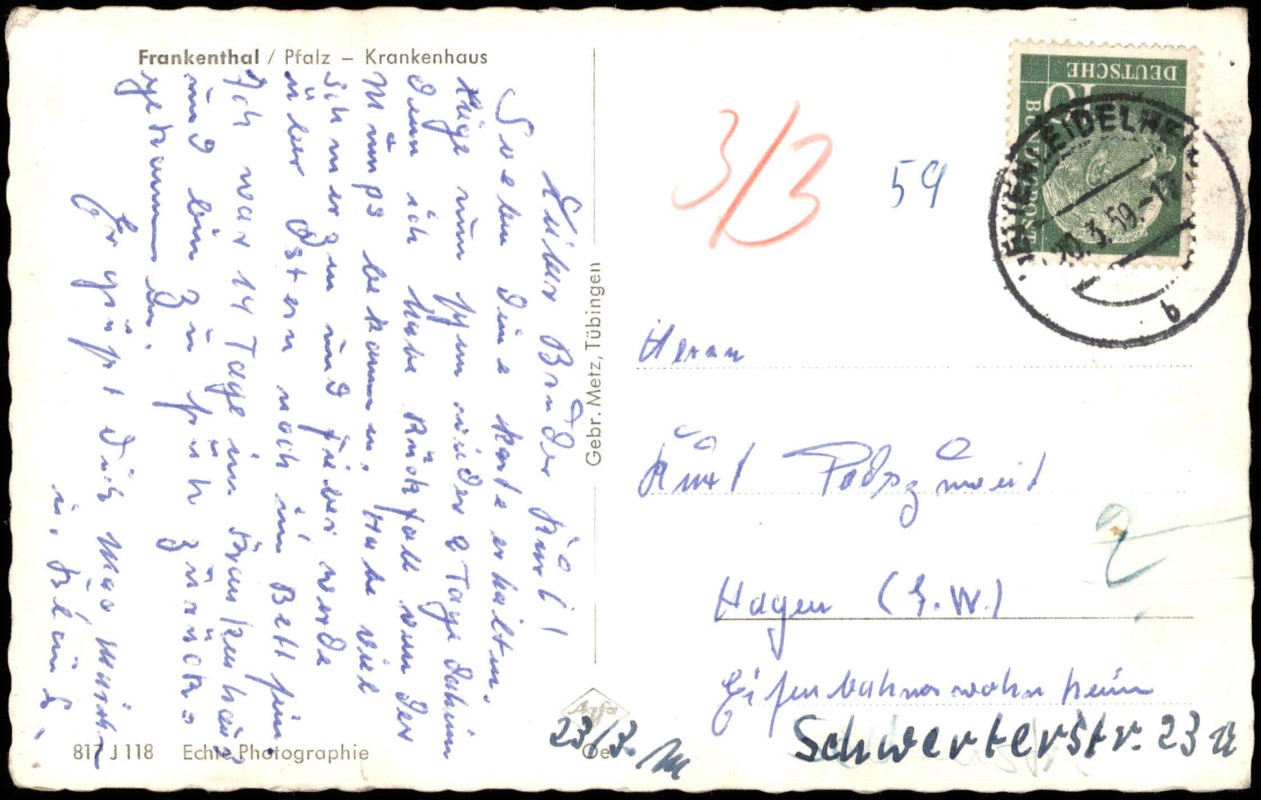 Frankenthal / Pfalz – Krankenhaus
Lieber Bruder Kurt!
Soeben Deine Karte erhalten.
Liege nun wieder 8 Tage daheim
denn ich habe Rückfall von der
Mumps bekommen. Habe viel
Schmerzen und Fieber werde
über Ostern noch im Bett sein.
Ich war 14 Tage im Krankenhaus
und bin zu früh zurück-
gekommen.
Es grüßt Dich Max
817 J 118 Echte Photographie
Gebr. Metz, Tübingen
Agfa
Oe
23/3.
3/3
59
DEUTSCHE
BUNDESPOST
10
20.3.59.-1
b
Herrn
Kurt Podszuweit
2
Hagen (I. W.)
Eisenbahnerwohnheim
Schwerterstr. 23 a